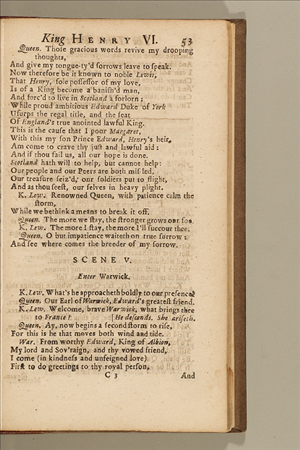 King HENRY VI. 53
Queen. Those gracious words revive my drooping
thoughts,
And give my tongue-ty'd sorrows leave to speak.
Now therefore be it known to noble Lewis,
That Henry, sole possessor of my love,
Is of a King become a banish'd man,
And forc'd to live in Scotland a forlorn;
While proud ambitious Edward Duke of York
Usurps the regal title, and the seat
Of England's true anointed lawful King.
This is the cause that I poor Margaret,
With this my son Prince Edward, Henry's heir,
Am come to crave thy just and lawful aid:
And if thou fail us, all our hope is done.
Scotland hath will to help, but cannot help:
Our people and our Peers are both mis-led,
Our treasure seiz'd, our soldiers put to flight,
And as thou seest, our selves in heavy plight.
K. Lew. Renowned Queen, with patience calm the
storm,
While we bethink a means to break it off.
Queen. The more we stay, the stronger grows our foe.
K. Lew. The more I stay, the more I'll succour thee.
Queen. O but impatience waiteth on true sorrow:
And see where comes the breeder of my sorrow.
SCENE V.
Enter Warwick.
K. Lew. What's he approacheth boldly to our presence?
Queen. Our Earl of Warwick, Edward's greatest friend.
K. Lew. Welcome, brave Warwick, what brings thee
to France? [He descends. She ariseth.
Queen. Ay, now begins a second storm to rise,
For this is he that moves both wind and tide.
War. From worthy Edward, King of Albion,
My lord and Sov'raign, and thy vowed friend,
I come (in kindness and unfeigned love)
First to do greetings to thy royal person,
C 3 And